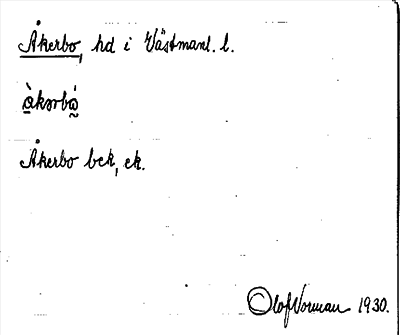 Åkerbo, hd i Västmanl. l.
àkərbó
Åkerbo bck, ek.
Olof Norman 1930.